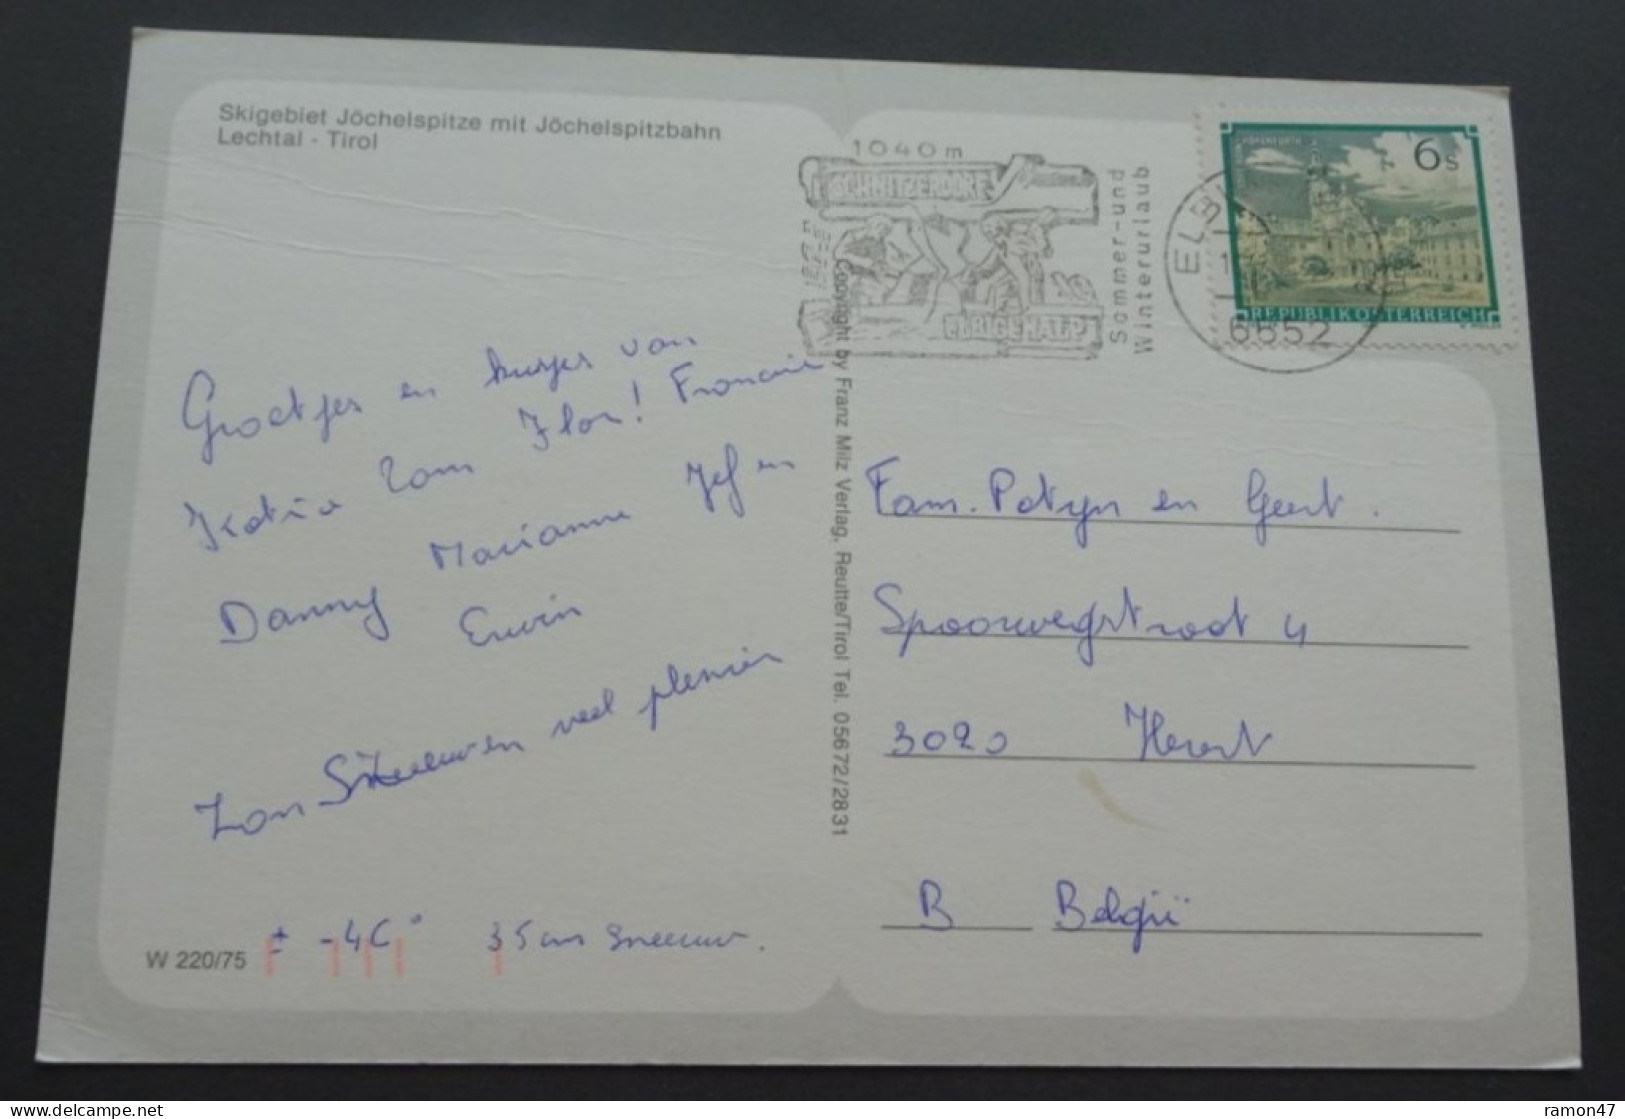 Skigebiet Jöchelspitze mit Jöchelspitzbahn
Lechtal - Tirol
1040 m
SCHNITZERDORF
ELBIGENALP
Sommer-und
Winterurlaub
ELBI
6652
6s
REPUBLIK ÖSTERREICH
Groetjes en kusjes van
Katia Tom Flor! Francine
Danny Marianne Jef en
Erwin
Zon Sneeuwen veel plezier
± -4C° 35cm sneeuw.
W 220/75
Copyright by Franz Milz Verlag, Reutte/Tirol Tel. 05672/2831
Fam. Potyn en Geert.
Spoorwegstraat 4
3020 Herent
B België
ramon47